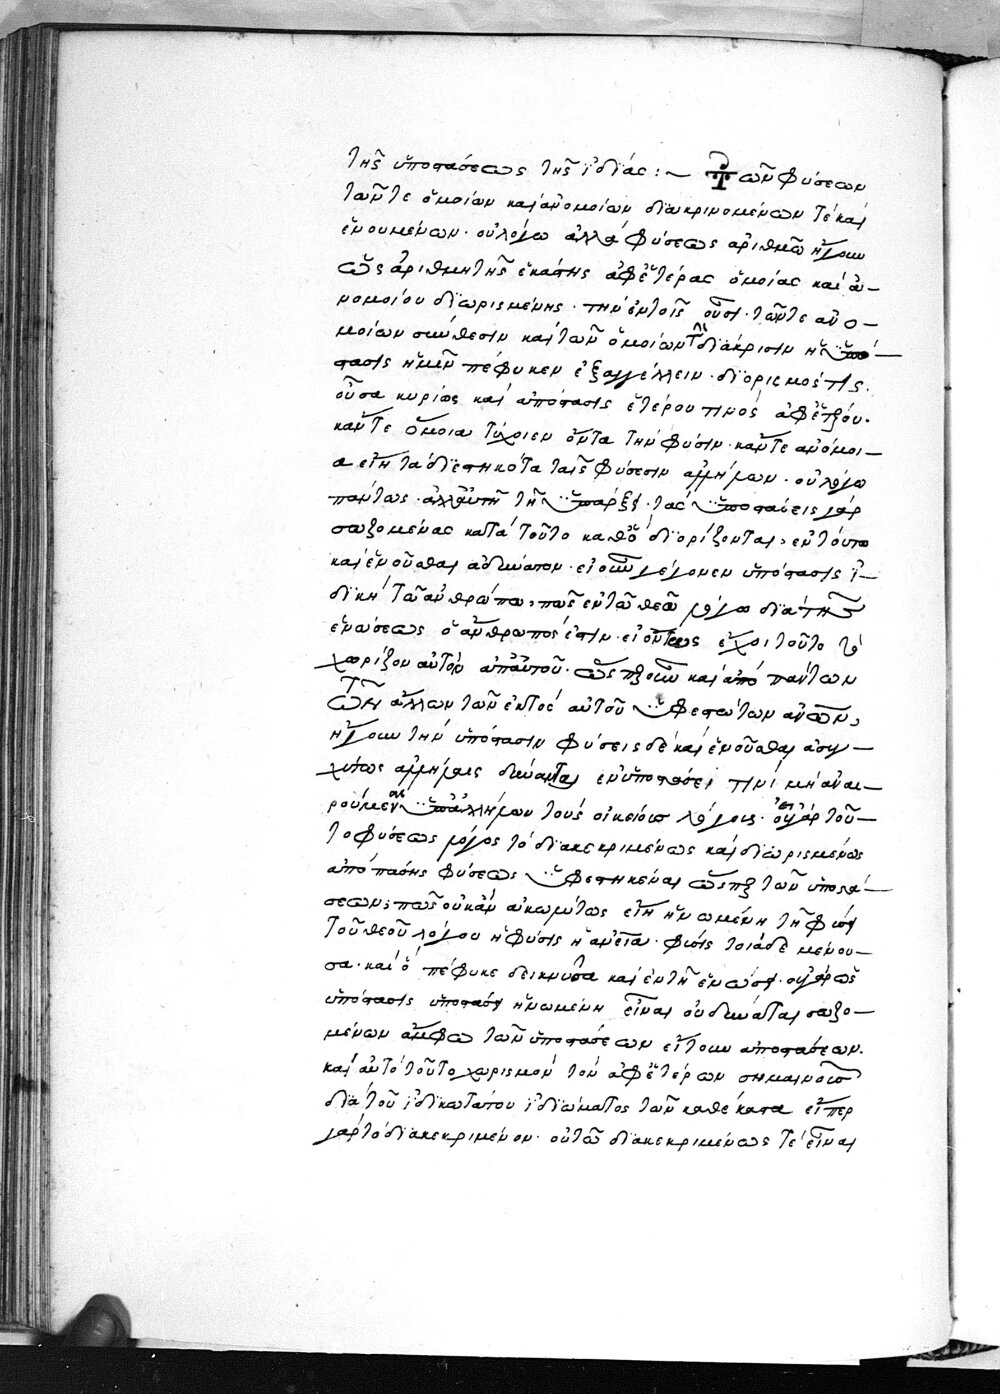 τῆς ὑποστάσεως τῆς ἰδίας :~ Τῶν φύσεων
τῶν τε ὁμοίων καὶ ἀνομοίων διακρινομένων τὲ καὶ
ἑνουμένων· οὐ λόγω ἀλλὰ φύσεως ἀριθμῶ ἤγουν
ὡς ἀριθμητῆς ἑκάστης ἀφ' ἑτέρας ὁμοίας καὶ ἀ-
νομοίου διωρισμένης· τὴν ἐν τοῖς οὖσι τῶν τε ἀνο-
μοίων σύνθεσιν καὶ τῶν ὁμοίων τὴν διάκρισιν ἡ ὑπό-
στασις ἡμῖν πέφυκεν ἐξαγγέλλειν· διορισμός τις
οὖσα κυρίως καὶ ἀπόστασις ἑτέρου τινὸς ἀφ' ἑτέρου·
κἄν τε ὅμοια τύχοιεν ὄντα τὴν φύσιν· κἄν τε ἀνόμοι-
α εἴη τὰ διεστηκότα ταῖς φύσεσιν ἀλλήλων· οὐ λόγω
πάντως· ἀλλ' αὐτῇ τῇ ὑπάρξει· τὰς ὑποστάσεις γὰρ
σωζομένας κατὰ τοῦτο καθ' ὃ διορίζονται, ἐν τούτω
καὶ ἑνοῦσθαι ἀδύνατον· εἰ οὖν γέγονεν ὑπόστασις ἰ-
δικὴ τῶ ἀνθρώπω, πῶς ἐν τῶ θεῶ λόγω διὰ τῆς
ἑνώσεως ὁ ἄνθρωπός ἐστιν· εἰ ὄντως ἔχοι τοῦτο τὸ
χωρίζον αὐτὸν ἀπ' αὐτοῦ· ὥσπερ οὖν καὶ ἀπὸ πάντων
τῶν ἄλλων τῶν ἐκτὸς αὐτοῦ ὑφεστώτων ἀνθρώπων,
ἤγουν τὴν ὑπόστασιν φύσεις δὲ καὶ ἑνοῦσθαι ἀσυγ-
χύτως ἀλλήλαις δύνανται ἐν ὑποστάσει τινὶ μὴ ἀναι-
ρούμεναι ὑπ' ἀλλήλων τοὺς οἰκείους λόγους· οὐ γάρ ἐστι τοῦ-
το φύσεως λόγος τὸ διακεκριμένως καὶ διωρισμένως
ἀπὸ πάσης φύσεως ὑφεστηκέναι ὥσπερ τῶν ὑποστά-
σεων, πῶς οὐκ ἂν ἀκωλύτως εἴη ἡνωμένη τῇ φύσει
τοῦ θεοῦ λόγου ἡ φύσις ἡ ἀνθρωπεία· φύσις τοιάδε μένου-
σα· καὶ ὃ πέφυκε δεικνῦσα καὶ ἐν τῇ ἑνώσει· οὐ γὰρ ὡς
ὑπόστασις ὑποστάσει ἡνωμένη εἶναι οὐ δύναται σωζο-
μένων ἄμφω τῶν ὑποστάσεων εἴτουν ἀποστάσεων.
καὶ αὐτὸ τοῦτο χωρισμὸν τὸν ἀφ' ἑτέρων σημαίνουσι
διὰ τοῦ ἰδικωτάτου ἰδιώματος τῶν καθ' ἕκαστα εἴπερ
γὰρ τὸ διακεκριμένον· οὕτω διακεκριμένως τὲ εἶναι